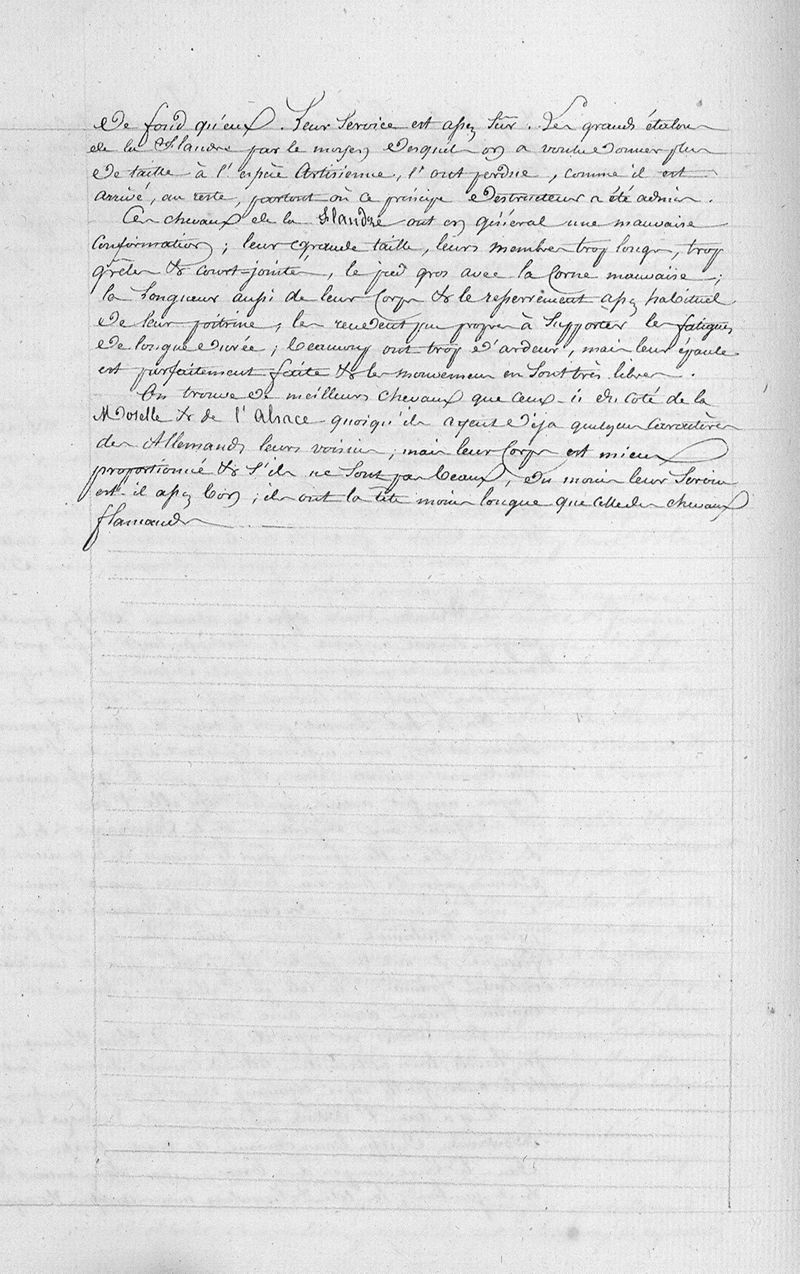 de fond qu'eux. Leur Service est assez Sûr. Les grands étalons
de la Flandre par le moyen desquels on a voulu donner plus
de taille à l'espèce Artésienne, l'ont perdue, comme il est
arrivé, au reste, partout où ce principe destructeur a été admis.
Ces chevaux de la flandre ont en général une mauvaise
Conformation; leur grande taille, leurs membres trop longs, trop
grêles & court-jointés, le pied gros avec la Corne mauvaise;
la longueur aussi de leur Corps & le resserrement assez habituel
de leur poitrine, les rendent peu propres à Supporter les fatigues
de longue durée; beaucoup ont trop d'ardeur, mais leur épaule
est parfaitement faite & les mouvemens en Sont très libres.
On trouve de meilleurs chevaux que ceux-ci du coté de la
Moselle & de l'alsace quoiqu'ils ayent déja quelques Caractères
des Allemands leurs voisins; mais leur Corps est mieux
proportionné & S'ils ne Sont pas beaux, du moins leur Service
est-il assez bon; ils ont la tête moins longue que celle des chevaux
flamands